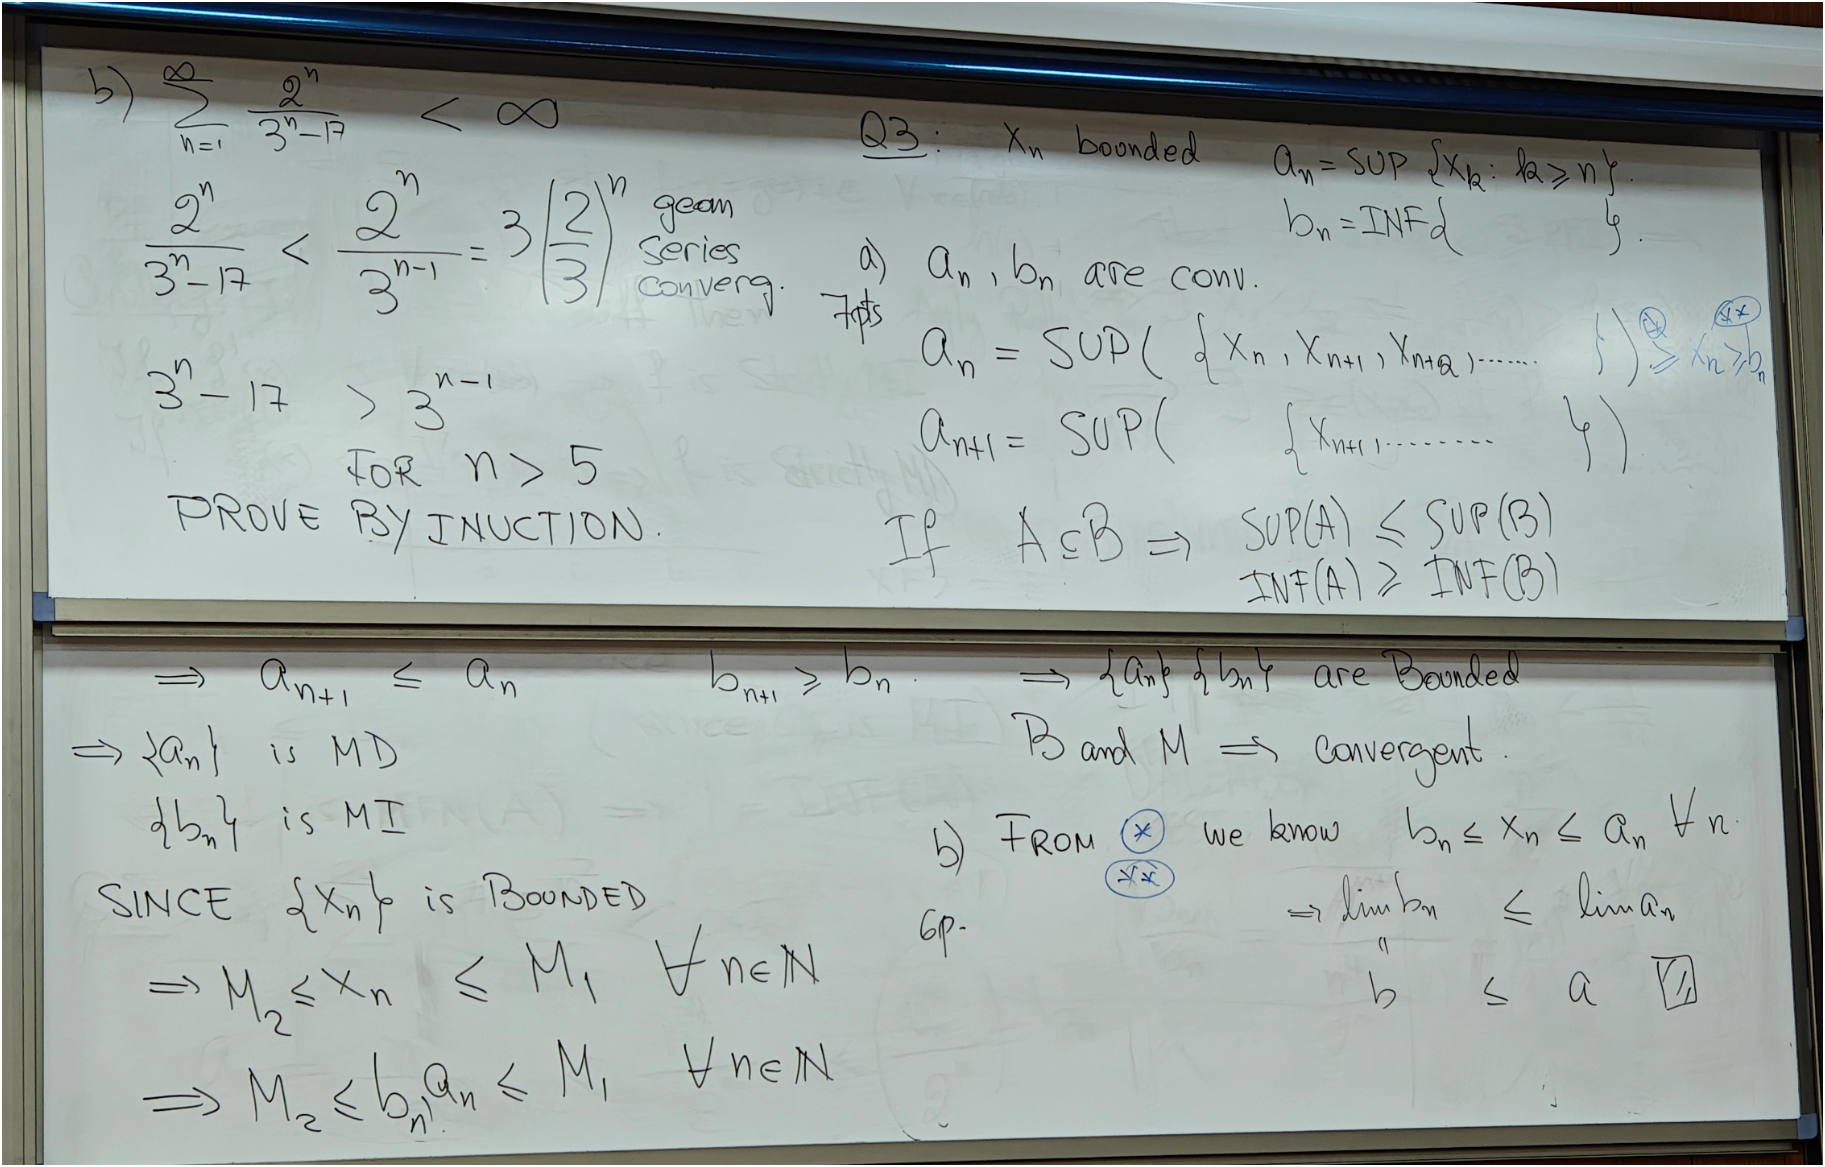 b) ∑_{n=1}^{∞} 2^n/(3^n-17) < ∞
2^n/(3^n-17) < 2^n/3^{n-1} = 3(2/3)^n geom
series
converg.
3^n - 17 > 3^{n-1}
FOR n > 5
PROVE BY INUCTION.
Q3: x_n bounded a_n = SUP {x_k : k ≥ n}.
b_n = INF{ }.
a) a_n, b_n are conv.
7pts
a_n = SUP( {x_n, x_{n+1}, x_{n+2}, ....... }) ≥ x_n ≥ b_n
* **
a_{n+1} = SUP( {x_{n+1}, ......... })
If A ⊆ B ⇒ SUP(A) ≤ SUP(B)
INF(A) ≥ INF(B)
⇒ a_{n+1} ≤ a_n b_{n+1} ≥ b_n.
⇒ {a_n} is MD
{b_n} is MI
SINCE {x_n} is BOUNDED
⇒ M_2 ≤ x_n ≤ M_1 ∀ n∈ℕ
⇒ M_2 ≤ b_n, a_n ≤ M_1 ∀ n∈ℕ
⇒ {a_n} {b_n} are Bounded
B and M ⇒ convergent.
b) FROM * we know b_n ≤ x_n ≤ a_n ∀ n.
**
6p.
⇒ lim b_n ≤ lim a_n
"
b ≤ a